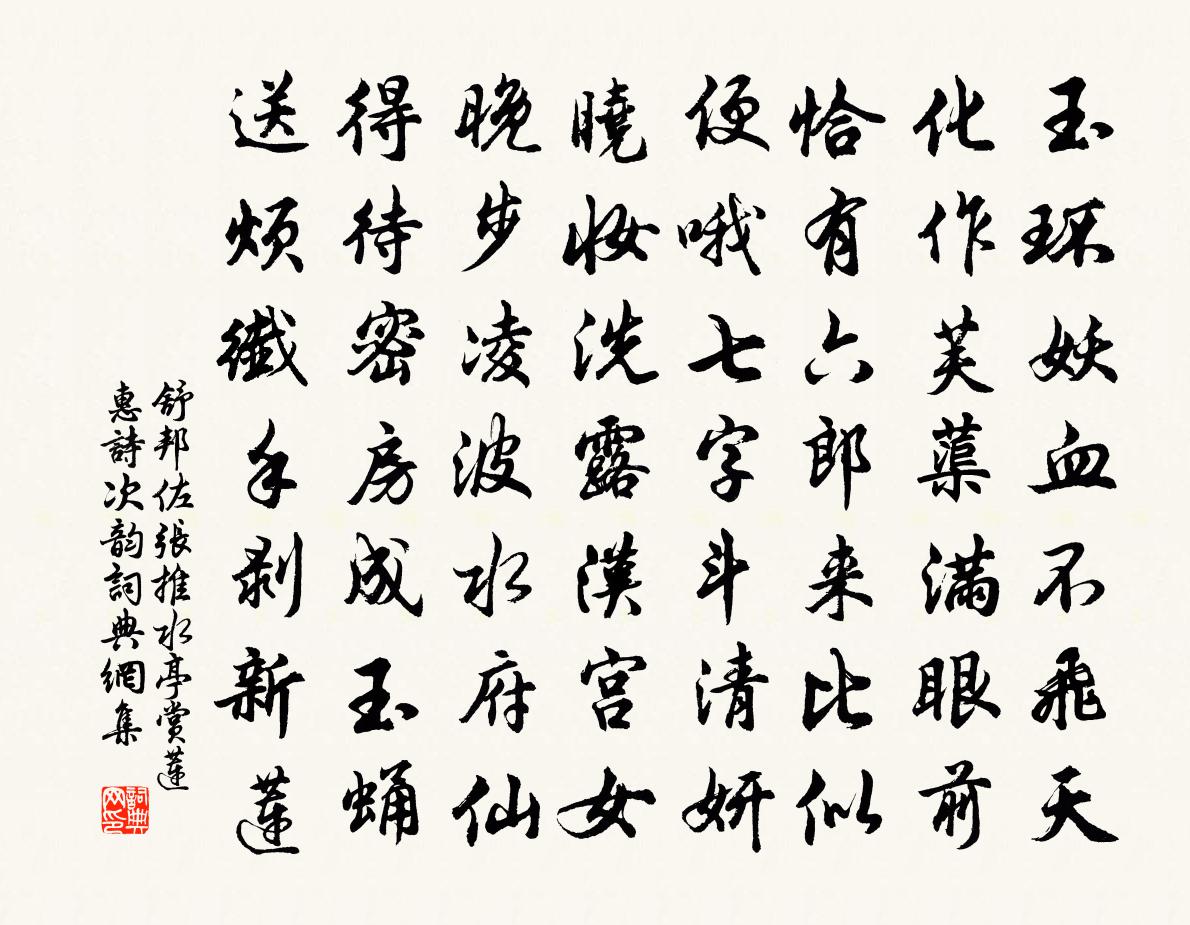 玉环妖血不飛天
化作芙蕖滿眼前
恰有六郎来比似
便哦七字斗清妍
曉妝洗露漢宫女
晚步凌波水府仙
得待密房成玉蛹
送煩纖手剥新蓮
舒邦佐張推水亭賞蓮
惠詩次韵詞典網集
詞典网印